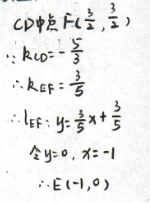 CD中点F(3/2, 3/2)
∴kCD=-5/3
∴kEF=3/5
∴lEF: y=3/5x+3/5
令y=0, x=-1
∴E(-1,0)